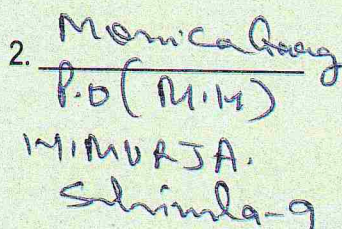 2. Monica Garg
P.O (M.M)
HIMURJA.
Shimla-9